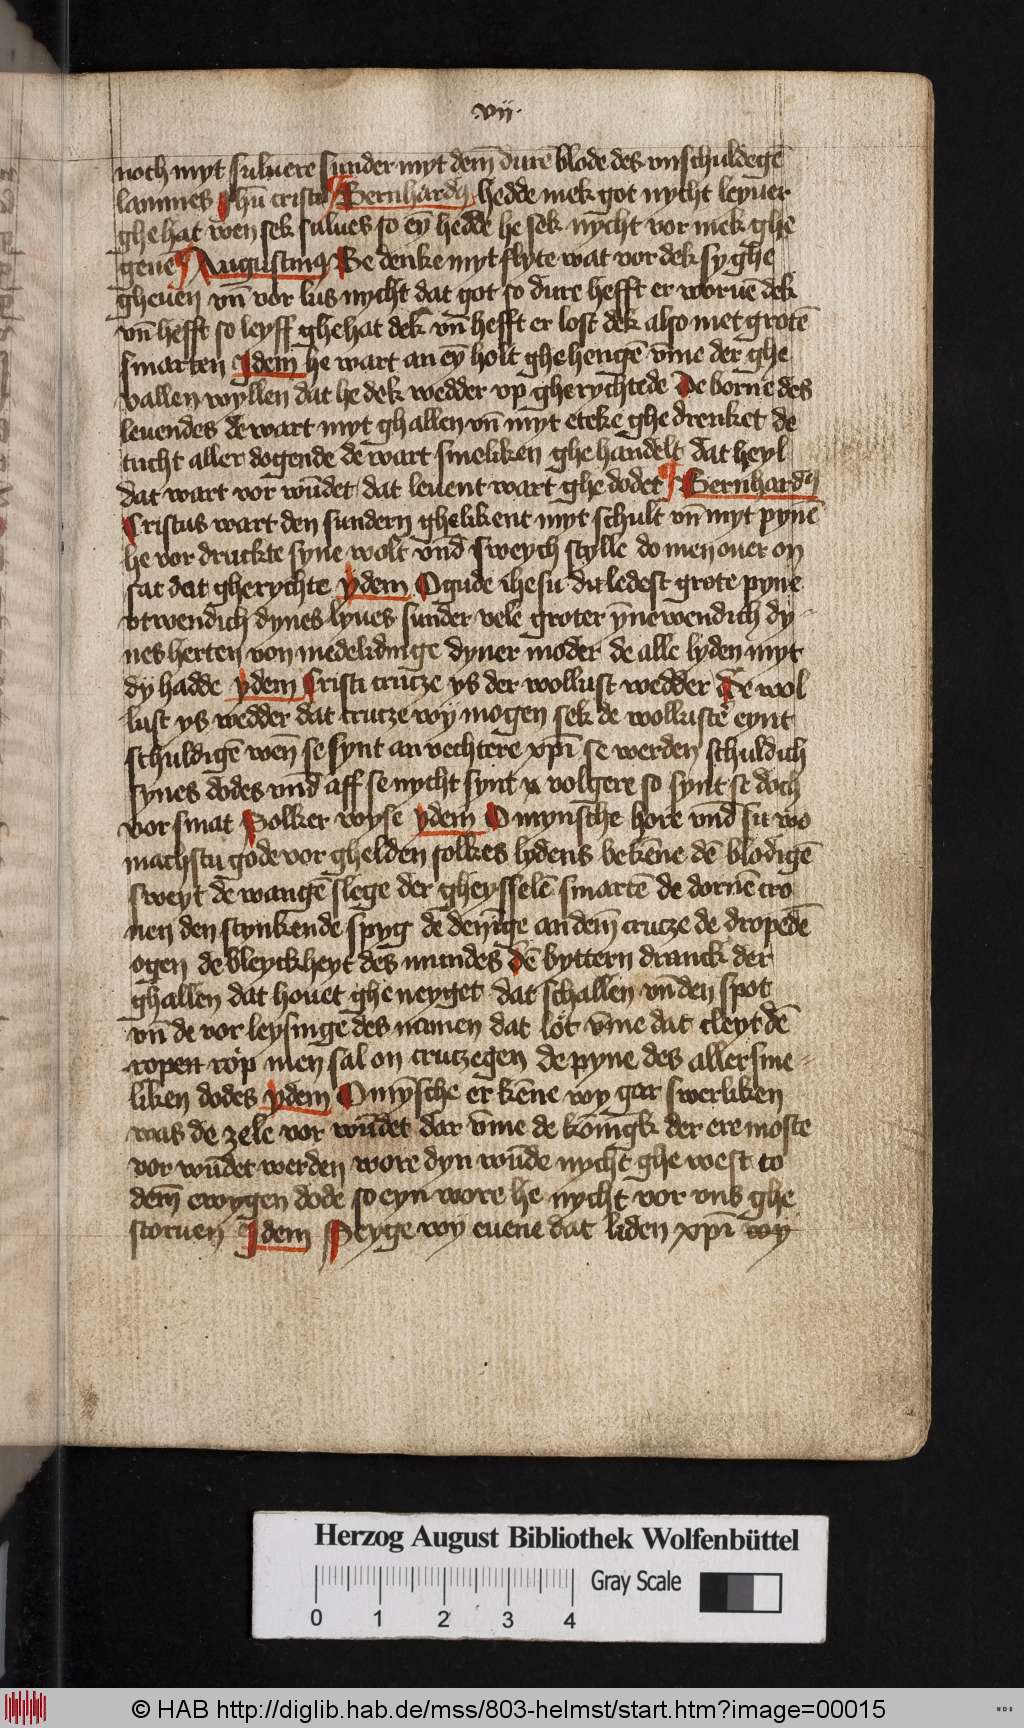 vij·
noch myt suluere sunder myt dem̄ durē blode des vnschuldegē
lammes Jhū cristi Bernhardꝰ hedde mek got nycht leyuer
ghehat wen sek sulues so eȳ hedde he sek nycht vor mek ghe
geue Augustinꝰ Be denke myt flyte wat vor dek sy ghe
gheuen vn̄ vor lus nycht dat got so dure hefft er woruē dek
vn̄ hefft so leyff ghehat dek vn̄ hefft er lost dek also met grotē
smarten Jdem he wart an eȳ holt ghe hengē vm̄e der ghe
vallen wyllen dat he dek wedder vp gherychtede De borne des
leuendes de wart myt ghallen vn̄ myt etcke ghe drenket de
tucht aller dogende de wart smeliken ghe handelt dat heyl
dat wart vor wūdet dat leuent wart ghe dodet Bernhardꝰ
Cristus wart den sundern ghelikent myt schult vn̄ myt pynē
he vor druckte syne wolt vnd sweych stylle do men ouer on
sat dat gherychte ydem O gude ihesu du ledest grote pyne
vtwendich dynes lyues sunder vele groter ȳnewendich dy
nes herten von medelidinge dyner moder de alle lyden myt
dy hadde ydem Cristi crutze ys der wollust wedder De wol
lust ys wedder dat crutze wy mogen sek de wollustē eynt
schuldigē wen̄ se synt an vechtere xp̄i se werden schuldich
synes dodes vnd aff se nycht synt volgere so synt se doch
vor smat Solker wyse ydem O mynsche hore vnd su wo
machstu gode vor ghelden solkes lydens bekēne dē blodigē
sweyt de wangē slege der gheysselē smartē de dornē cro
nen den stynkende spyg de denīge an dem̄ crucze de dropedē
ogen de bleyckheyt des mundes dē byttern dranck der
ghallen dat houet ghe neyget dat schallen vn̄ den spot
vn̄ de vor leysinge des namen dat lot vm̄e dat cleyt dē
ropen rop men sal on crutzegen de pyne des aller sme
liken dodes ydem O mȳsche er kēne wy gar swerliken
was de zele vor wūdet dar vm̄e de konīgk der ere moste
vor wūdet werden wore dyn wūde nycht ghe west to
dem̄ ewygen dode so eyn wore he nycht vor vns ghe
storuen Jdem Seyge wy euene dat liden xp̄i wy
Herzog August Bibliothek Wolfenbüttel
Gray Scale
0 1 2 3 4
© HAB http://diglib.hab.de/mss/803-helmst/start.htm?image=00015